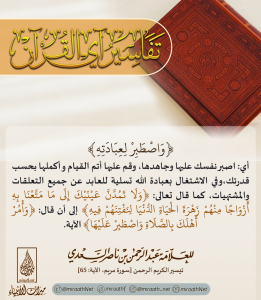 تفاسير آي القرآن
﴿وَاصْطَبِرْ لِعِبَادَتِهِ﴾
أي: اصبر نفسك عليها وجاهدها، وقم عليها أتم القيام وأكملها بحسب
قدرتك، وفي الاشتغال بعبادة الله تسلية للعابد عن جميع التعلقات
والمشتهيات، كما قال تعالى: ﴿وَلَا تَمُدَّنَّ عَيْنَيْكَ إِلَىٰ مَا مَتَّعْنَا بِهِ
أَزْوَاجًا مِنْهُمْ زَهْرَةَ الْحَيَاةِ الدُّنْيَا لِنَفْتِنَهُمْ فِيهِ﴾ إلى أن قال: ﴿وَأْمُرْ
أَهْلَكَ بِالصَّلَاةِ وَاصْطَبِرْ عَلَيْهَا﴾ الآية.
للعلامة عبدالرحمن بن ناصر السعدي
تيسير الكريم الرحمن [سورة مريم، الآية: 65]
ميراث الأنبياء
@miraathNet
@miraathNet